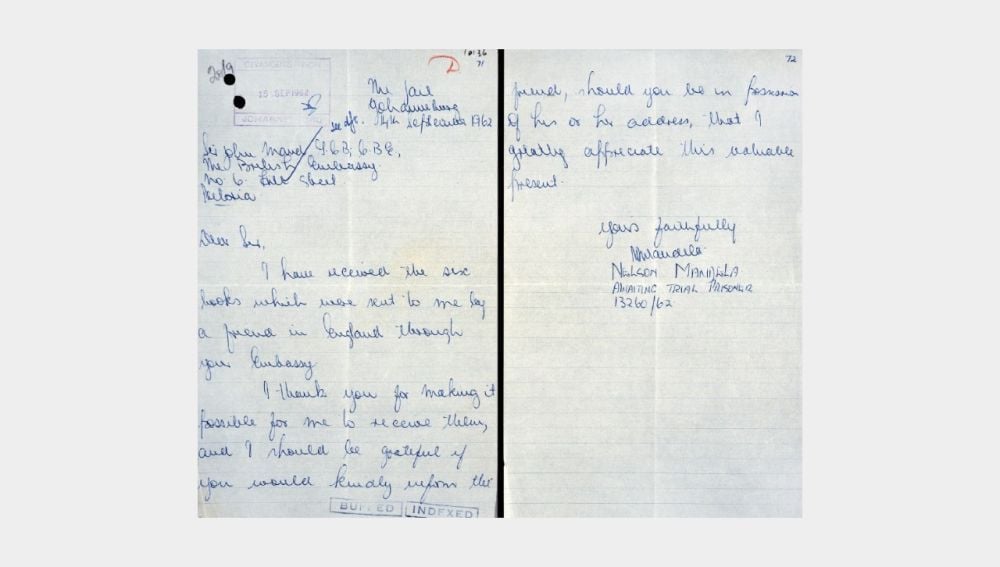 71
15 SEP 1962
The Jail
Johannesburg
see d/r. 14th September 1962
Sir John Maud G.C.B, C.B.E,
The British Embassy.
No. 6. Street
Pretoria
Dear Sir,
I have received the six
books which were sent to me by
a friend in England through
your Embassy
I thank you for making it
possible for me to receive them,
and I should be grateful if
you would kindly inform this
INDEXED
72
friend, should you be in possession
of his or her address, that I
greatly appreciate this valuable
present.
Yours faithfully
NMandela
NELSON MANDELA
AWAITING TRIAL PRISONER
13260/62